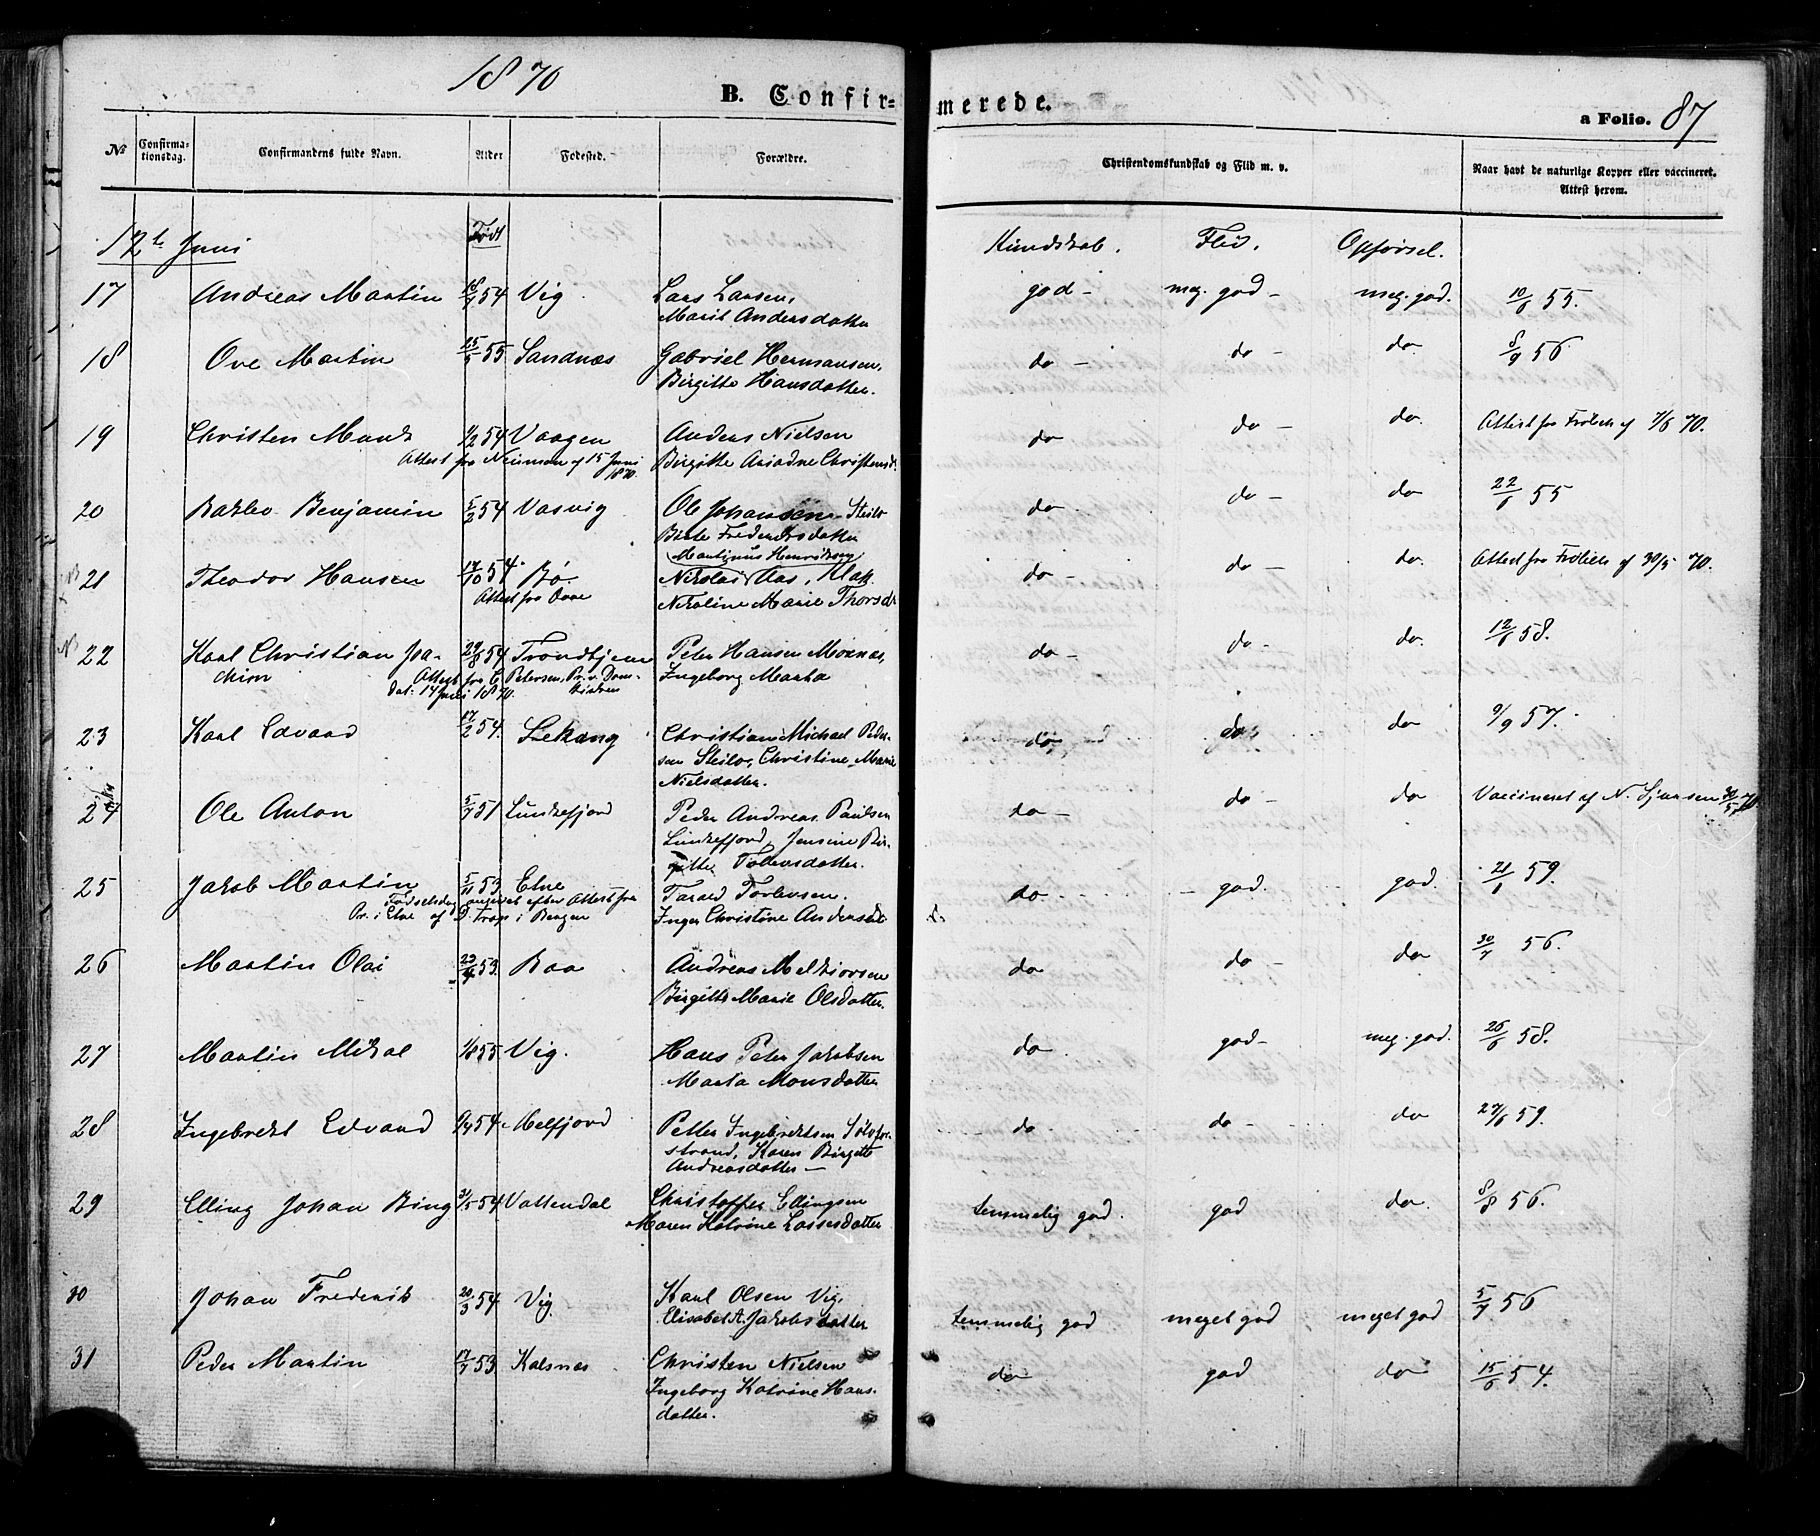 1870
B. Confir=
merede.
a Folio. 87
No
Confirma-
tionsdag.
Confirmandens fulde Navn.
Alder
Fødested.
Forældre.
Christendomskundskab og Flid m. v.
Naar havt de naturlige Kopper eller vaccineret.
Attest herom.
12te Juni
Født
Kundskab.
Flid.
Opførsel.
17 Andreas Martin 54 Vig. Lars Larsen, god - meg. god - meg. god. 10/6 55.
Marit Andersdatter
18 Ove Martin 25/5 55. Sandnæs Gabriel Hermansen, do - do - do 8/9 56
Birgitte Hansdatter.
19 Christen Munk 1/2 54 Vaagen Anders Nielsen do do - do. Attest fra Frølich af 7/6 70.
Attest fra Neuman af 15 Juni Birgitte Ariadne Christensd.
1870.
20 Benjamin 5/2 54 Vasvig Ole Johansen Steilo do - do - do 22/6 55
Birte Frederiksdatter
Martinus Henriksen
21 Theodor Hansen 17/10 54 Bø. Nikolai Aas, Klak do - do - do. Attest fra Frølich af 30/5 70.
Attest fra Nikoline Marie Thorsd.
22 Karl Christian Joa- 29/8 54 Trondhjem Peter Hansen Moxnæs, do - do - do. 12/6 58.
chim Attest fra C. Petersen, Pr. v. Dom- Ingeborg Marta
dat. 14 Juni 1870. kirken
23 Karl Edvard 17/2 54. Lekang Christian Michael Peder- do do do 9/9 57.
sen Steilo, Christine Marie
Nielsdatter.
24 Ole Anton 5/7 51 Lunkefjord Peder Andreas Paulsen do - do - do Vaccineret af N. Sjursen 30/5 70
Lunkefjord, Jensine Bir-
gitte Tollevsdatter.
25 Jakob Martin 5/11 53. Etne Tarald Torlevsen. do - god. god. 21/1 59.
Fødselsdag angivet efter Attest fra Inger Christine Andersd.
Pr. i Etne af D. Trap i Bergen
26 Martin Olai 23/4 53. Raa Andreas Melkiorsen do do - do 30/7 56.
Birgitte Marie Olsdatter.
27 Martin Mikal 1/8 55 Vig. Hans Peter Jakobsen do. god - meg. god. 26/6 58.
Marta Monsdatter
28 Ingebrekt Edvard 9/4 54. Melfjord Petter Ingebrektsen Sølvfor- do - do - do 27/6 59.
strand, Karen Birgitte
Andreasdatter -
29 Elling Johan Bing 3/5 54. Vattendal Christoffer Ellingsen temmelig god. god do. 8/8 56.
Maren Katrine Lassesdatter
30 Johan Frederik 20/3 54. Vig. Karl Olsen Vig, temmelig god meget god meget god 5/7 56
Elisabet A. Jakobsdatter
31 Peder Martin 17/7 53. Kalsnæs Christen Nielsen do god do 15/6 54.
Ingeborg Katrine Hans-
datter.